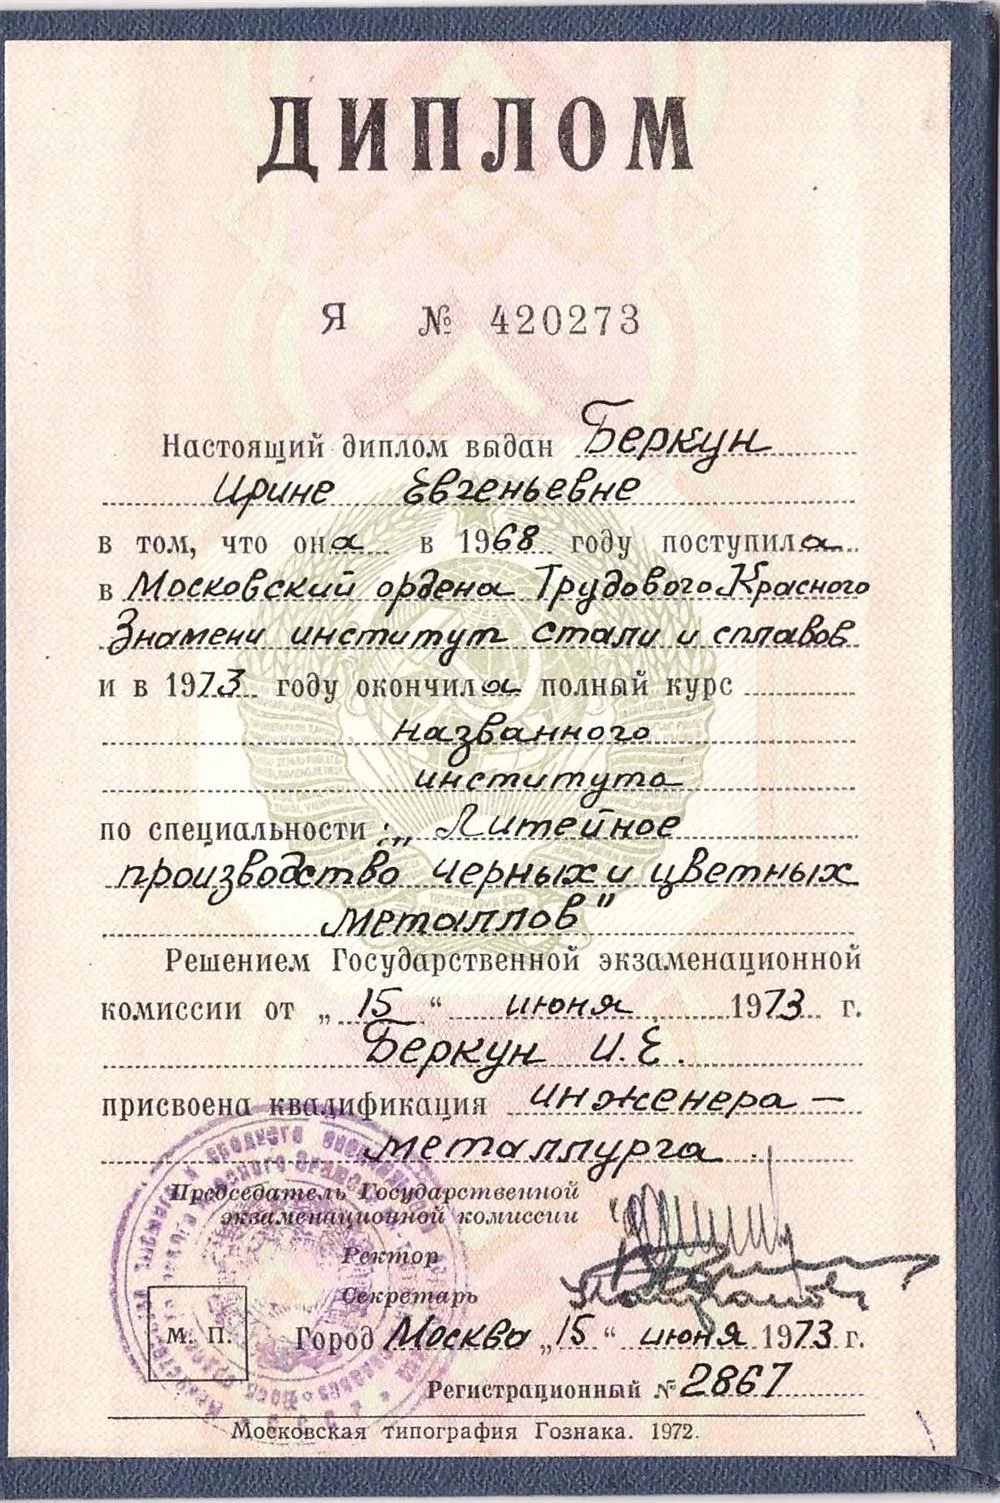 ДИПЛОМ
Я № 420273
Настоящий диплом выдан Беркун
Ирине Евгеньевне
в том, что она в 1968 году поступила
в Московский ордена Трудового Красного
Знамени институт стали и сплавов
и в 1973 году окончила полный курс
названного
института
по специальности: „Литейное
производство черных и цветных
металлов"
Решением Государственной экзаменационной
комиссии от „15" июня 1973 г.
Беркун И.Е.
присвоена квалификация инженера –
металлурга.
Председатель Государственной
экзаменационной комиссии
Ректор
Секретарь
М. П.
Город Москва „15" июня 1973 г.
Регистрационный № 2867
Московская типография Гознака. 1972.